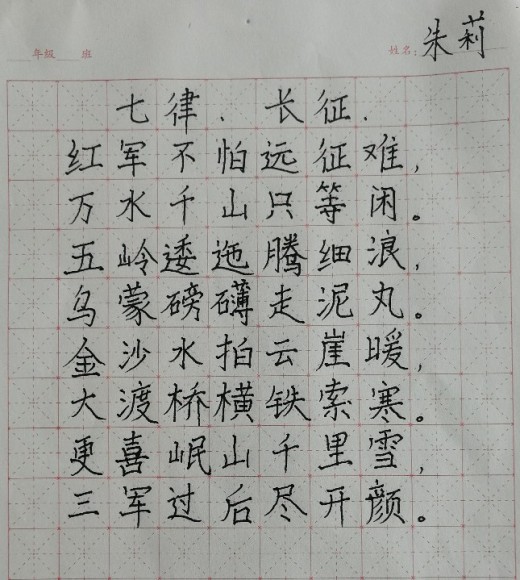 年级 班 姓名：朱莉
七律．长征．
红军不怕远征难，
万水千山只等闲。
五岭逶迤腾细浪，
乌蒙磅礴走泥丸。
金沙水拍云崖暖，
大渡桥横铁索寒。
更喜岷山千里雪，
三军过后尽开颜。